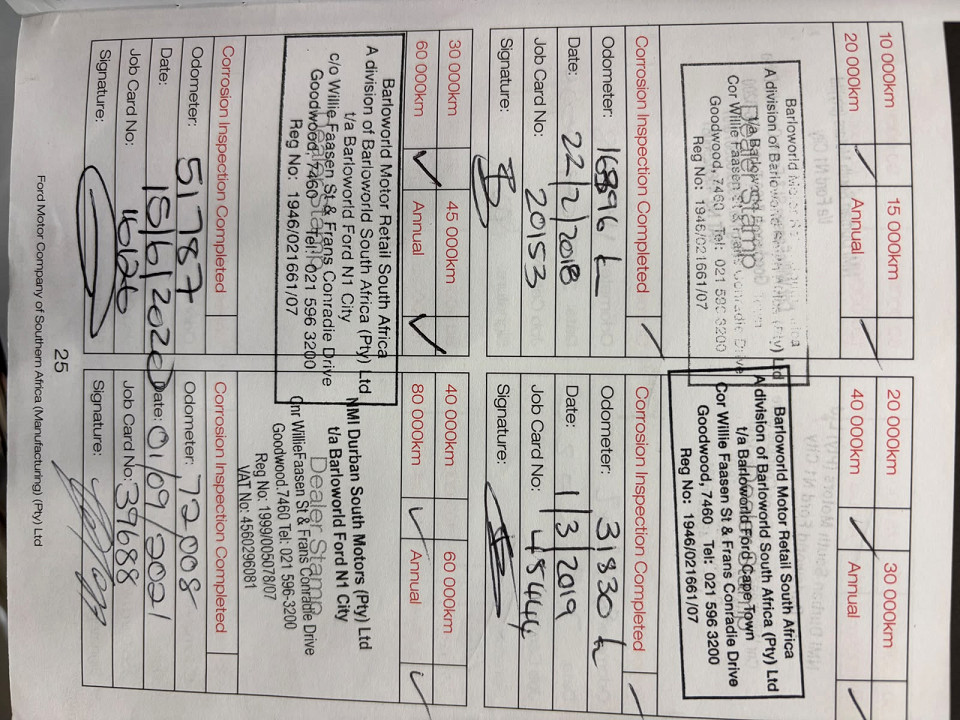 10 000km 15 000km
20 000km ✓ Annual ✓
Barloworld Motor Retail South Africa
A division of Barloworld South Africa (Pty) Ltd
t/a Barloworld Ford Cape Town
Dealer Stamp
Cor Willie Faasen St & Frans Conradie Drive
Goodwood, 7460 Tel: 021 596 3200
Reg No: 1946/021661/07
Corrosion Inspection Completed ✓
Odometer: 16896
Date: 22/2/2018
Job Card No: 20153
Signature:
20 000km 30 000km
40 000km ✓ Annual ✓
Barloworld Motor Retail South Africa
A division of Barloworld South Africa (Pty) Ltd
t/a Barloworld Ford Cape Town
Cor Willie Faasen St & Frans Conradie Drive
Goodwood, 7460 Tel: 021 596 3200
Reg No: 1946/021661/07
Corrosion Inspection Completed ✓
Odometer: 31830
Date: 1/3/2019
Job Card No: 45444
Signature:
30 000km 45 000km
60 000km ✓ Annual ✓
Barloworld Motor Retail South Africa
A division of Barloworld South Africa (Pty) Ltd
t/a Barloworld Ford N1 City
c/o Willie Faasen St & Frans Conradie Drive
Dealer Stamp
Goodwood, 7460 Tel: 021 596 3200
Reg No: 1946/021661/07
Corrosion Inspection Completed
Odometer: 51787
Date: 15/6/2020
Job Card No: 16126
Signature:
40 000km 60 000km
80 000km ✓ Annual ✓
NMI Durban South Motors (Pty) Ltd
t/a Barloworld Ford N1 City
Dealer Stamp
Cnr Willie Faasen St & Frans Conradie Drive
Goodwood.7460 Tel: 021 596-3200
Reg No: 1999/005078/07
VAT No: 4560296081
Corrosion Inspection Completed
Odometer: 72008
Date: 01/09/2021
Job Card No: 39688
Signature:
25
Ford Motor Company of Southern Africa (Manufacturing) (Pty) Ltd